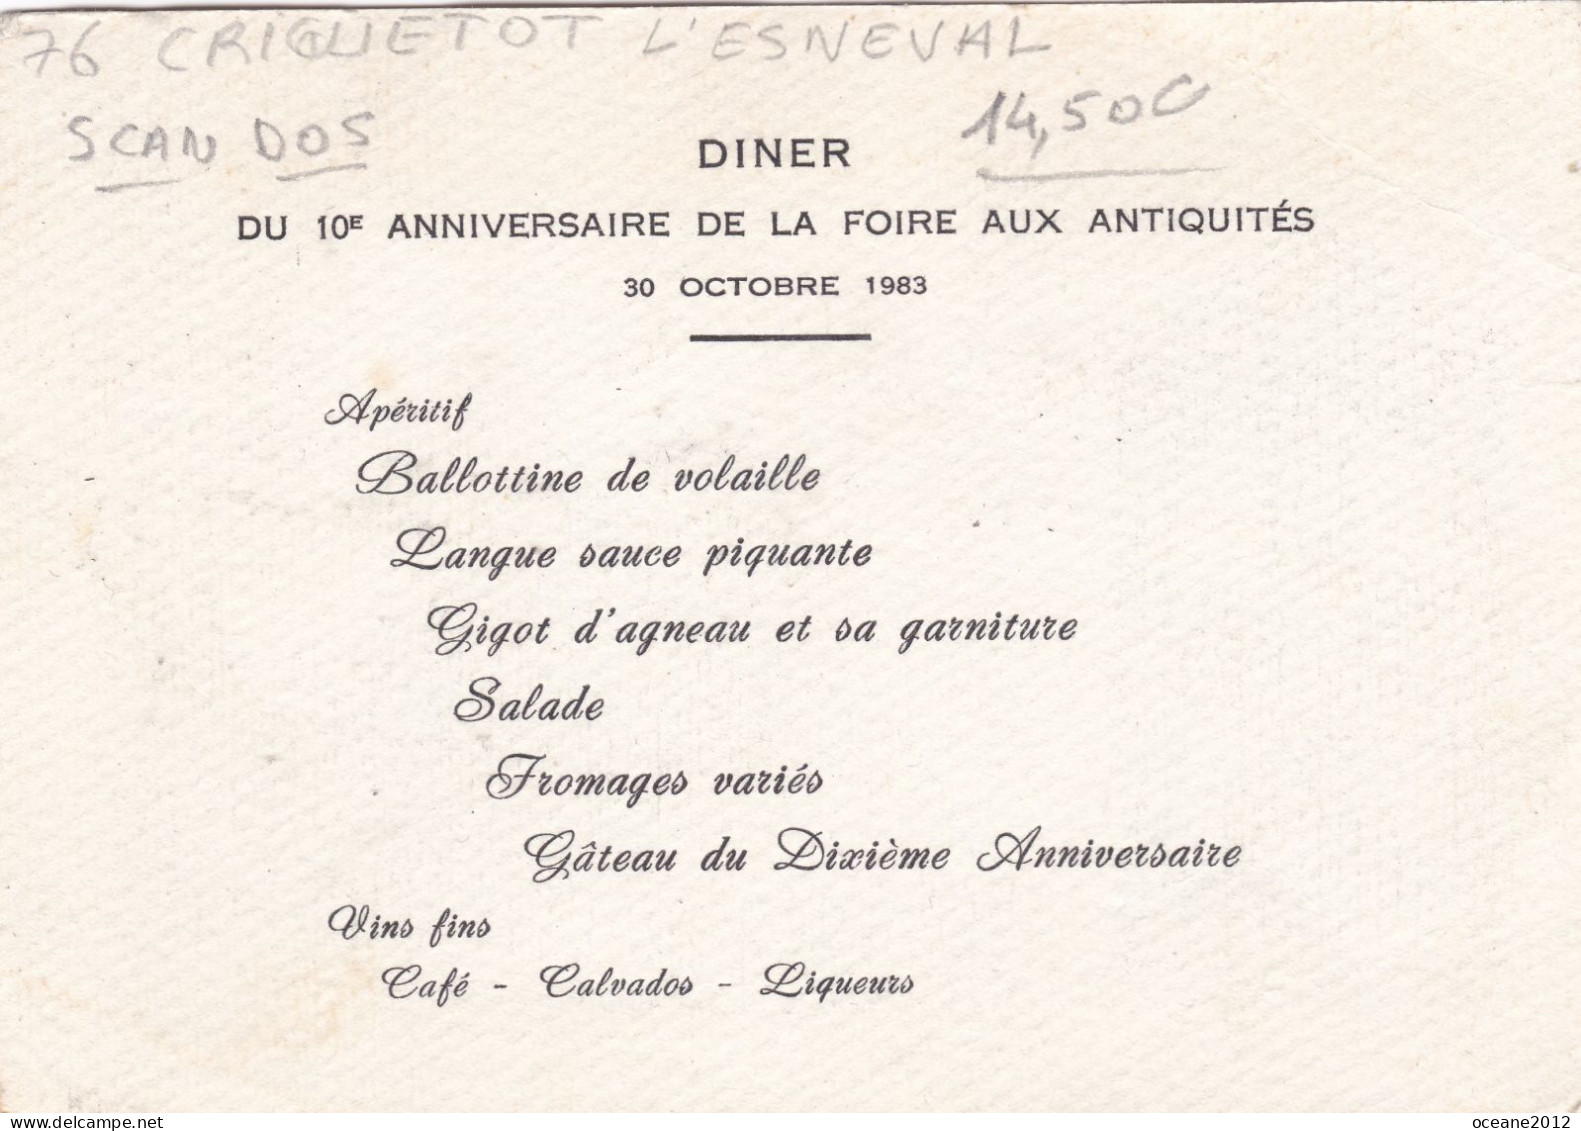 76 CRIQUETOT L'ESNEVAL
SCAN DOS
14,50€
DINER
DU 10E ANNIVERSAIRE DE LA FOIRE AUX ANTIQUITÉS
30 OCTOBRE 1983
Apéritif
Ballottine de volaille
Langue sauce piquante
Gigot d'agneau et sa garniture
Salade
Fromages variés
Gâteau du Dixième Anniversaire
Vins fins
Café - Calvados - Liqueurs
delcampe.net
oceane2012